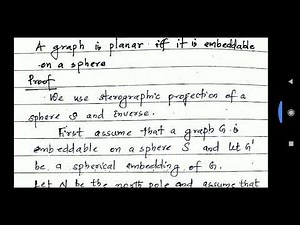 A graph is planar iff it is embeddable
on a sphere
Proof
We use sterographic projection of a
sphere S and inverse.
First assume that a graph G is
embeddable on a sphere S and let G'
be a spherical embedding of G.
Let N be the north pole and assume that